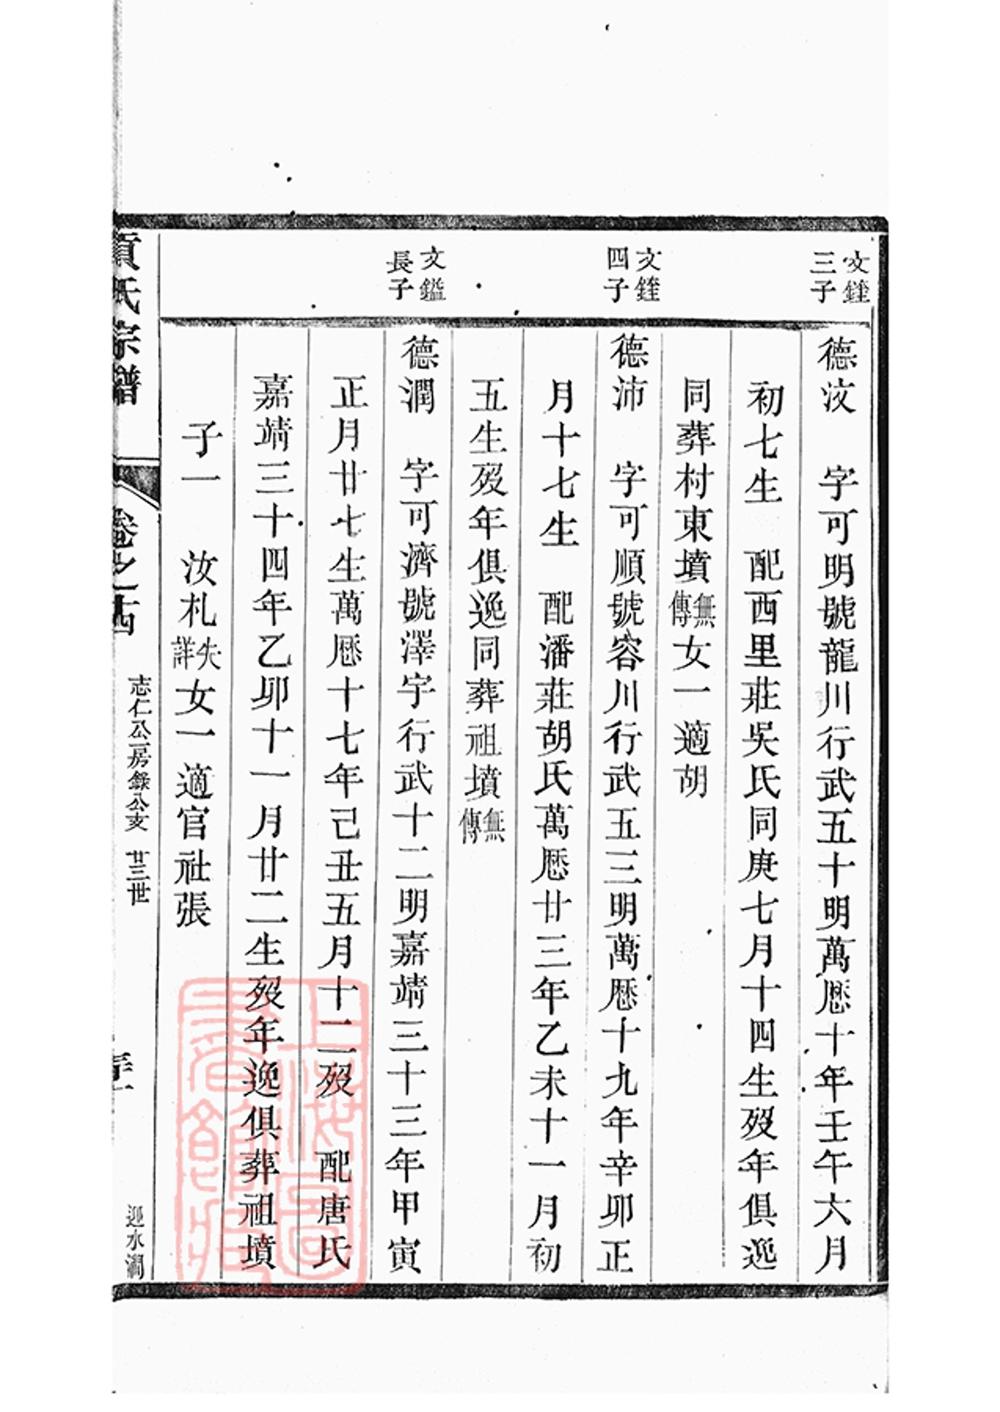 文鍷三子
德汶 字可明號龍川行武五十明萬厯十年壬午六月
初七生 配西里莊吳氏同庚七月十四生歿年俱逸
同葬村東墳無傳女一適胡
文鍷四子
德沛 字可順號容川行武五三明萬厯十九年辛卯正
月十七生 配潘莊胡氏萬厯廿三年乙未十一月初
五生歿年俱逸同葬祖墳無傳
文鎰長子
德潤 字可濟號澤宇行武十二明嘉靖三十三年甲寅
正月廿七生萬厯十七年己丑五月十二歿 配唐氏
嘉靖三十四年乙卯十一月廿二生歿年逸俱葬祖墳
子一 汝札失詳女一適官社張
貢氏宗譜 卷之十四 志仁公房錄公支 廿三世 迎水澗
上海圖書館藏